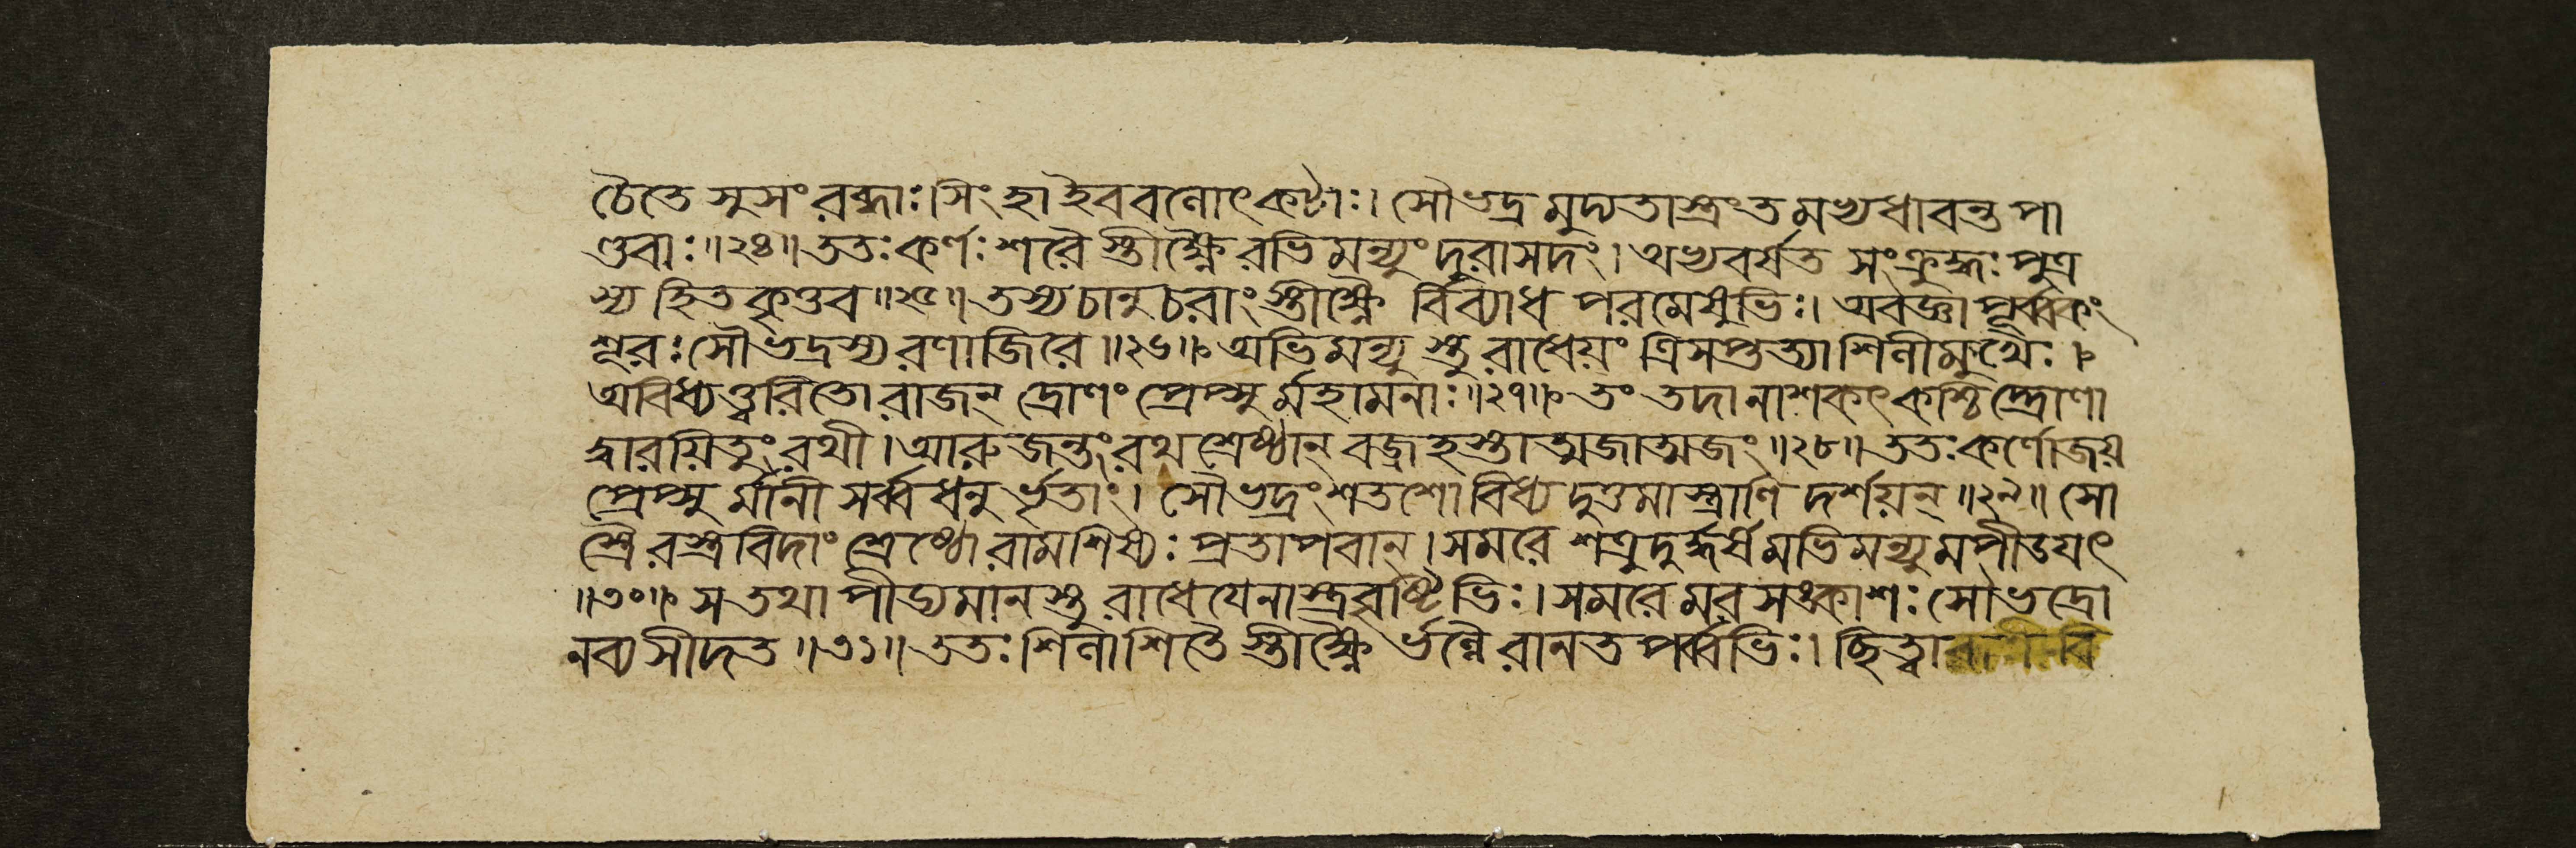 চৈতে সুসংরব্ধাঃ।সিংহাইববণোৎকটাঃ। সৌভদ্রমুদ্যতাস্ত্রংতমভ্যধাবন্তপা
ণ্ডবাঃ॥২৪॥ততঃকর্ণঃশরৈস্তীক্ষ্ণৈরভিমন্যুংদুরাসদং।অভ্যবর্ষতসংক্রুদ্ধঃপুত্র
স্য হিতকৃত্তব॥২৫॥তস্যচানুচরাংস্তীক্ষ্ণৈর্বিব্যাধপরমেষুভিঃ। অবজ্ঞাপূর্ব্বকং
শূরঃসৌভদ্রস্যরণাজিরে॥২৬॥ অভিমন্যুস্তুরাধেয়ং ত্রিসপ্তত্যাশিলীমুখৈঃ।
অবিধ্যত্ত্বরিতোরাজন্ দ্রোণংপ্রেপ্সুর্মহামনাঃ॥২৭॥ তংতদানাশকৎকশ্চিদ্দ্রোণা
দ্বারয়িতুংরথী।আরুজন্তংরথশ্রেষ্ঠান্ বজ্রহস্তাত্মজাত্মজং॥২৮॥ততঃকর্ণোজয়
প্রেপ্সুর্মানীসর্ব্বধনুর্ভৃতাং। সৌভদ্রংশতশোবিধ্যদুত্তমাস্ত্রাণিদর্শয়ন্॥২৯॥ সো
স্ত্রৈরস্ত্রবিদাংশ্রেষ্ঠোরামশিষ্যঃপ্রতাপবান্।সমরেশত্রুদুর্দ্ধর্ষমভিমন্যুমপীডযৎ
॥৩০॥ সতথাপীড্যমানস্তুরাধেযেনাস্ত্রবৃষ্টিভিঃ।সমরেমরসঙ্কাশঃসৌভদ্রো
নব্যসীদত॥৩১॥ততঃশিলাশিতৈস্তীক্ষ্ণৈর্ভল্লৈরানতপর্ব্বভিঃ।ছিত্ত্বা